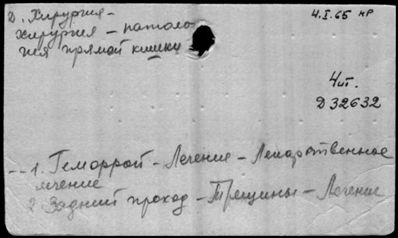 Д. Хирургия -
хирургия - патоло-
гия прямой кишки
4.I.65 нр
4ит.
Д32632
-- 1. Геморрой - Лечение - Лекарственное
лечение
2. Задний проход - Трещины - Лечение